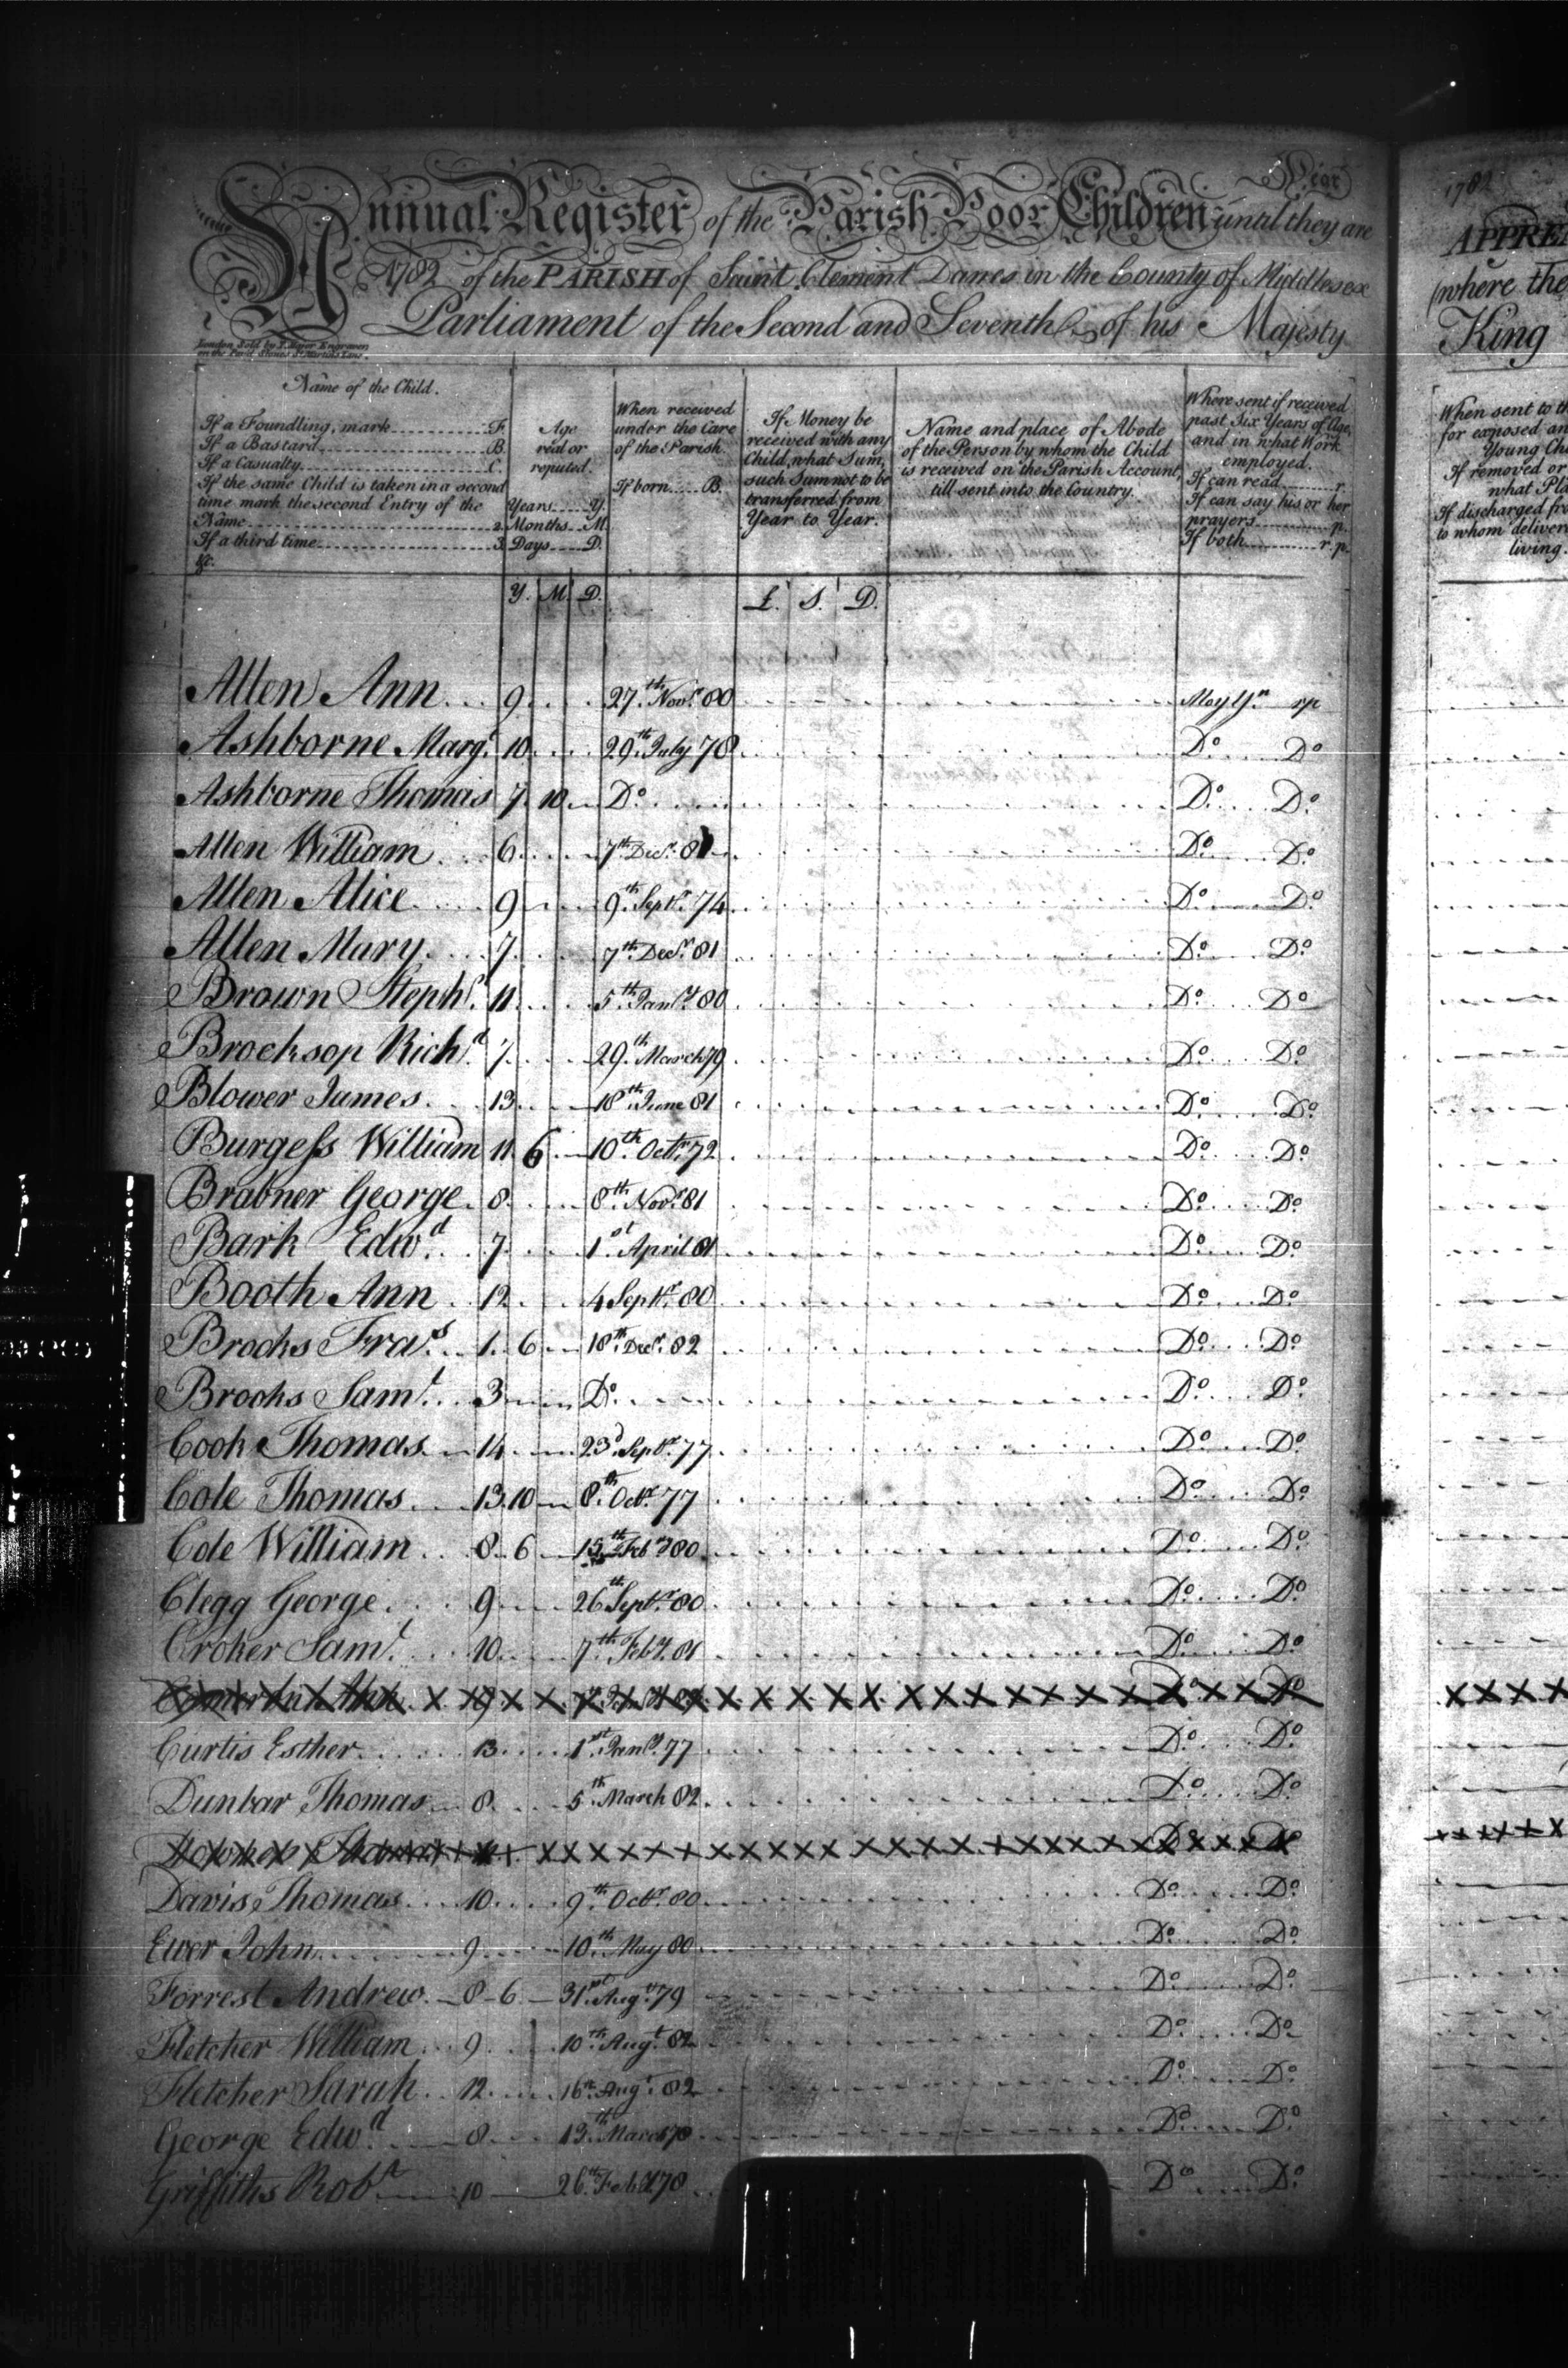 Year
Annual Register of the Parish Poor Children until they are
1782 of the PARISH of Saint Clement Danes in the County of Middlesex
Parliament of the Second and Seventh of his Majesty
London Sold by
Name of the Child.
If a Foundling, mark F.
If a Bastard B.
If a Casualty C.
If the same Child is taken in a second
time mark the second Entry of the
Name 2.
If a third time 3.
&c.
Age
real or
reputed.
Years Y.
Months M.
Days D.
When received
under the Care
of the Parish.
If born B.
If Money be
received with any
Child, what Sum,
such Sum not to be
transferred from
Year to Year.
Name and place of Abode
of the Person by whom the Child
is received on the Parish Account,
till sent into the Country.
Where sent if received
past Six Years of Age,
and in what Work
employed.
If can read r.
If can say his or her
prayers p.
If both r. p.
Y. M. D. £. S. D.
Allen Ann 9 27th Novr. 80 rp
Ashborne Margt. 10 29th July 78 Do Do
Ashborne Thomas 7 10 Do Do Do
Allen William 6 7th Decr. 81 Do Do
Allen Alice 9 9th Septr. 74 Do Do
Allen Mary 7 7th Decr. 81 Do Do
Brown Stephn. 11 5th Jany. 80 Do Do
Brocksop Richd. 7 29th March 79 Do Do
Blower James 13 18th June 81 Do Do
Burgess William 11 6 10th Octr. 72 Do Do
Brabner George 8 8th Novr. 81 Do Do
Bark Edwd. 7 1st April 81 Do Do
Booth Ann 12 4 Septr. 80 Do Do
Brooks Fras. 1 6 18th Decr. 82 Do Do
Brooks Saml. 3 Do Do Do
Cook Thomas 14 23d Septr. 77 Do Do
Cole Thomas 13 10 8th Octr. 77 Do Do
Cole William 8 6 15th Feby. 80 Do Do
Clegg George 9 26th Septr. 80 Do Do
Croker Saml. 10 7th Feby. 81 Do Do
Do Do
Curtis Esther 13 1st Jany. 77 Do Do
Dunbar Thomas 8 5th March 82 Do Do
Do Do
Davis Thomas 10 9th Octr. 80 Do Do
Ewer John 9 10th May 80 Do Do
Forrest Andrew 8 6 31st Augt. 79 Do Do
Fletcher William 9 10th Augt. 82 Do Do
Fletcher Sarah 12 16th Augt. 82 Do Do
George Edwd. 8 13th March 78 Do Do
Griffiths Robt. 10 26th Feby. 78 Do Do
1782
APPRE
(where the
King
When sent to th
for exposed an
Young Chi
If removed or
what Pla
If discharged fro
to whom deliver
living.